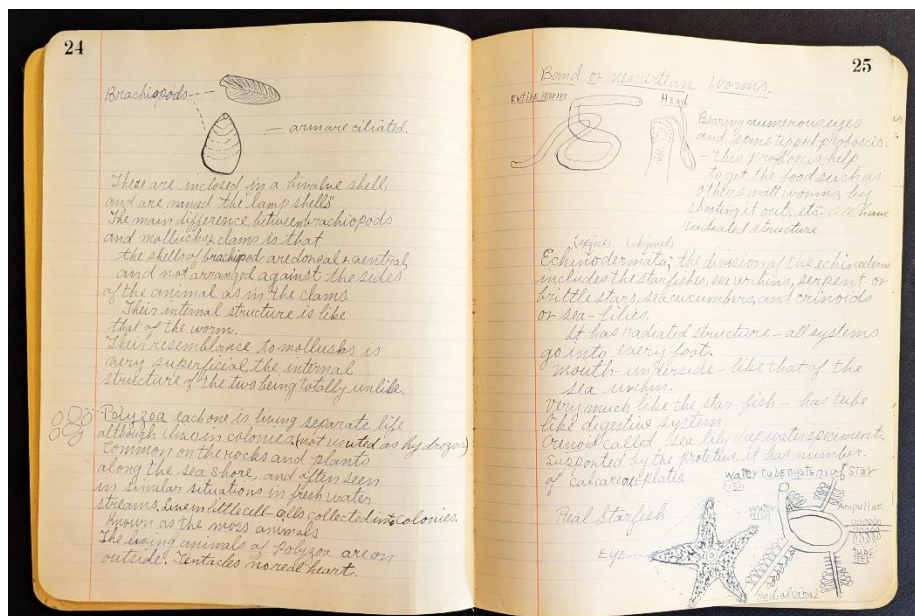 24
Brachiopods
— arm are ciliated.
These are inclosed in a bivalve shell,
and are named the "lamp shells"
The main difference between brachiopods
and mollusks & clams is that
the shells of brachiopod are dorsal & ventral
and not arranged against the sides
of the animal as in the clams
Their internal structure is like
that of the worm.
Their resemblance to mollusks is
very superficial, the internal
structure of the two being totally unlike.
Polyzoa each one is living separate life
although live in colonies (not united as hydrozoa)
Common on the rocks and plants
along the sea shore, and often seen
in similar situations in fresh water
streams. Live in little cell-cells collected into colonies.
Known as the moss animals
The living animals of polyzoa are on
outside. Tentacles no real heart.
25
Band or nemertean Worms.
Entire worm
Head
Bearing numerous eyes
and spine-tipped proboscis.
- this proboscis help
to get the food such as
other small worms, by
shooting it out, etc. All have
radiated structure
(spine) (skinned)
Echinodermata; the division of the echinoderm
includes the starfishes, sea urchins, serpent or
brittle stars, sea cucumbers, and crinoids
or sea-lilies.
It has radiated structure — all systems
go into every foot.
Mouth - underside - like that of the
sea urchin.
Very much like the star-fish — has tube
like digestive system
Crinoid called sea lily deep water speciment.
Supported by the it has number
of calcareous plates
Water tube system of Star
fish
Real Starfish
Eye
water
Ampullae
tube
feet
radial canal